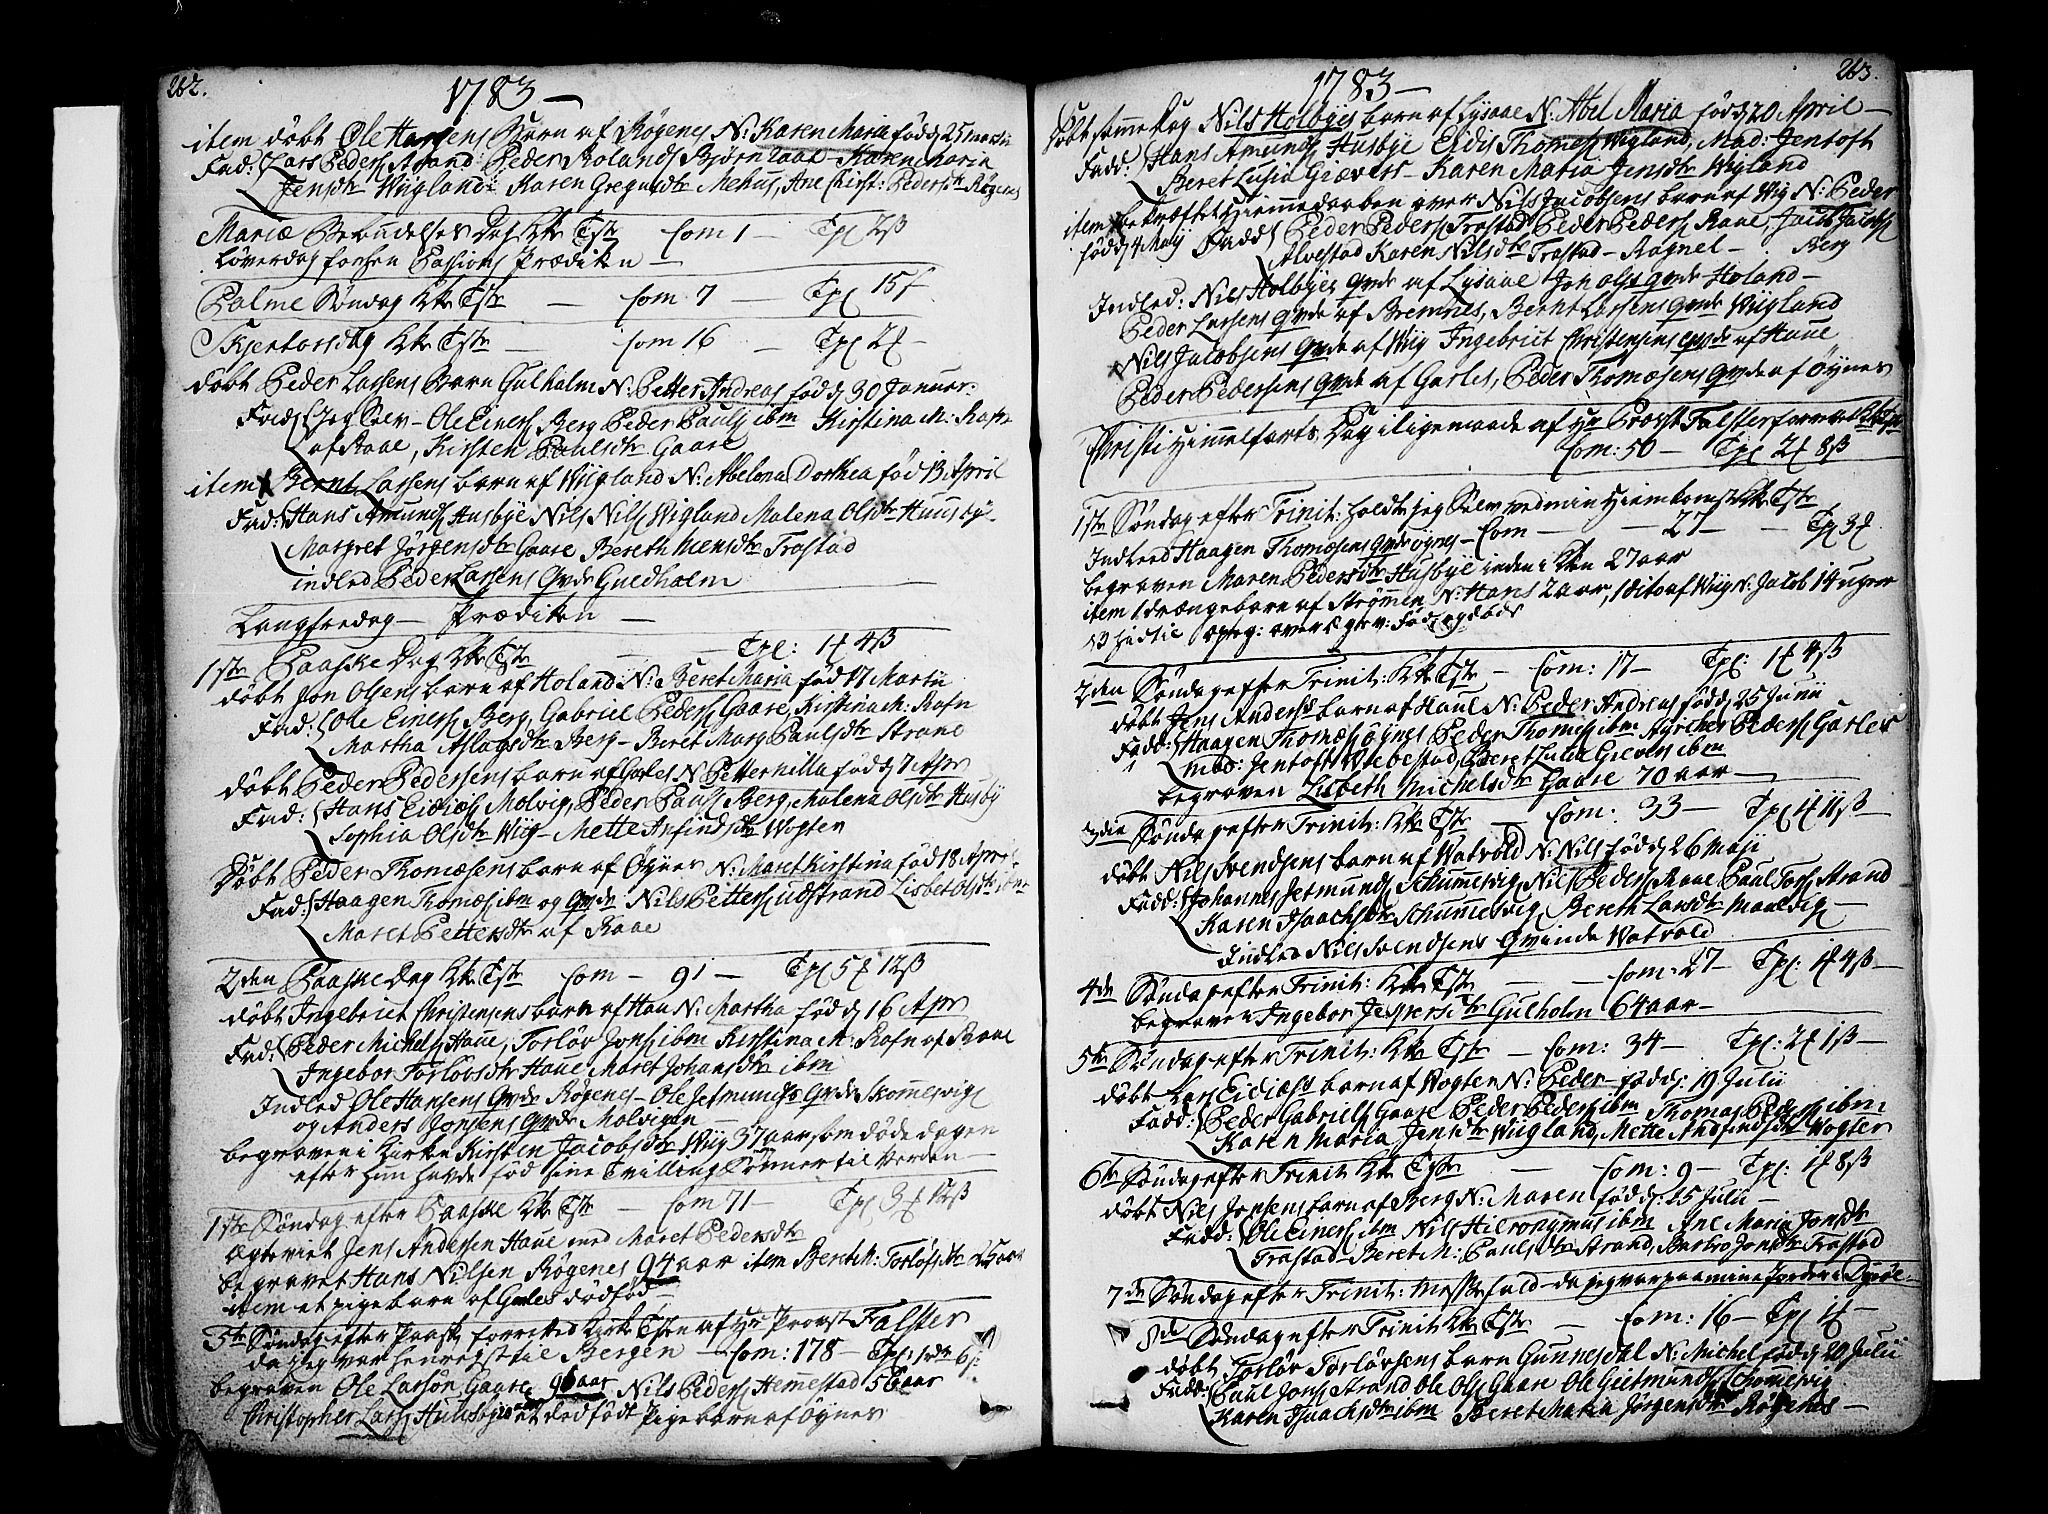 262.
1783 —
item döbt Ole Hansens Barn af Røgenes N: Karen Maria föd d 25 Martii
Fad: Lars Peders Strand Peder Rolands Bjørn Karen Maria
Jensdtr Wiigland Karen Gregusdtr Mehus, Ane Christ: Pedersdtr Røgenes
Mariæ Bebudelses Dag Kke Tste Com 1 Tpl 2ß
Löverdag forhen Passions Prædiken —
Palme Søndag Kke Tste — Com 7 — Tpl 15ß
Skjertorsdag Kke Tste — Com 16 — Tpl 2
döbt Peder Larsens Barn Gulholm N: Petter Andreas föd d 30 Januar:
Fad: Jeg Selv — Ole Einers Berg Peder Pauls ibm Kirstina M: Rafn
af Raae, Kirsten Paulsdtr Gaare
item Bernt Larsens barn af Wiigland N: Abelona Dorthea föd 13 April
Fad: Hans Amunds Husbye Nils Nils Wigland Malena Olsdtr Huusby
Margret Jørgensdtr Gaare Bereth Mensdtr Trastad
indled Peder Larsens Qvde Guldholm
Langfredag — Prædiken —
1ste Paaske Dag Kke Tste — Tpl: 1 4ß
döbt Jon Olsens barn af Holand N: Beret Maria föd 17 Martii
Fad: Ole Einers Berg, Gabriel Peders Gaare, Kirstina M: Rafn
Martha Aslagsdtr Berg — Beret Marg Paulsdtr Strand
döbt Peder Pedersens barn af Garles N: Petternilla föd d 7 Apr
Fad: Hans Eidies Molvig, Peder Pauls Berg, Malena Olsdtr Husby
Sophia Olsdtr Wiig — Mette Anfindsdtr Wogter
Döbt Peder Thomæsens barn af Øynes N: Maret Kirstina föd 18 April
Fad: Haagen Thomæs ibm og Qvde Nils Petters udstrand Lisbet Olsdtr ibm
Maret Pettersdtr af Raae
2den Paaske Dag Kke Tste Com — 91 — Tpl 5 12ß
döbt Ingebrict Christensens barn af Hau N: Martha föd d 16 Apr
Fad: Peder Michels Haue, Torløv Jons ibm Kirstina M: Rafn af Raae
Ingebor Torløvsdtr Haue Maret Johansdtr ibm
Indled Ole Hansens Qvde Røgenes — Ole Jetmunds Qvde Skommesvig
og Anders Jonsens Qvde Molvigen —
begraven i Kirken Kirsten Jacobsdtr Wiig 37 aar, som døde dagen
efter hun havde föd sine Tvilling Sønner til Verden —
1ste Søndag efter Paaske Kke Tste — Com 71 — Tpl 3 12ß
Ægteviet Jens Andersen Haue med Maret Pedersdtr
begravet Hans Nilsen Røgenes 94 aar item Beret M: Torløfsdtr
item et pigebarn af Garles dödföd —
3te Søndag efter Paask forrettes Kirke Tsten af Hr Provst Falster
da jeg var henreyst til Bergen — Com: 178 — Tpl: 1 rdr 6ß
begraven Ole Larsön Gaare 96 aar Nils Peders Hemmestad 56 aar
Christopher Lars Huusbye et dödfödt Pigebarn af Øynes
263.
1783 —
Döbt samme Dag Nils Holbyes barn af Lysaae N: Abel Maria föd d 20 April —
Fadd: Hans Amunds Husbye Eidis Thomes Wigland, Mad: Jentoft
Beret Lusia Giævers — Karen Maria Jensdtr Wigland
item bekræftet Hiemmedaaben over Nils Jacobsens barn af Wig N: Peder
föd d 4 Maij Fadd: Peder Peders Trastad, Peder Peders Raae, Jacob Jacobs
Alvestad Karen Nilsdtr Trastad — Ragnel — Berg
Indled: Nils Holbyes Qvde af Lysaae Jon Ols Qvde Holand —
Peder Larsens Qvde af Bremnes, Bernt Larsens Qvde Wiigland
Nils Jacobsens Qvde af Wiig Ingebrict Christensens Qvde af Haue
Peder Pedersens Qvde af Garles, Peder Thomæsens Qvde af Øynes
Christi Himmelfarts Dag iligemaade af Hr Provst Falster forrettet Kke Tste
Com: 50 — Tpl 2 8ß
1ste Søndag efter Trinit: holdt jeg Selv ved min Hiemkomst Kke Tste
Indled Haagen Thomæsens Qvde øynes — Com — 27 — Tpl 3
begraven Maren Pedersdtr Husbye inden i Kkn 27 aar
item 1 drængebarn af Strømmen N: Hans 2 aar, 1 dito af Wiig N: Jacob 14 uger
2den Søndag efter Trinit: Kke Tste — Com: 17 — Tpl: 1 4ß
döbt Jens Anders barn af Haue N: Peder Andreas föd d 25 Junii
Fadd: Haagen Thomæs øynes Peder Thomes ibm Peders Garles
Mad: Jentoft Wiebestad, Beret Lusia Gievers ibm
begraven Lisbeth Michelsdtr Gaare 70 aar —
3die Søndag efter Trinit: Kke Tste — Com: 33 — Tpl 1 11ß
döbt Nils Svendsens barn af Watvold N: Nils föd d 26 Maji
Fadd: Johannes Jetmunds Schummesvig, Nils Peders Raae Paul Tors Strand
Karen Isachsdtr Schummesvig, Bereth Larsdtr Maelvig —
Indled Nils Svendsens Qvinde Watvold
4de Søndag efter Trinit: Kke Tste — Com: 27 — Tpl: 1 4ß —
begraven Ingebor Jespersdtr Gulholm 64 aar —
5te Søndag efter Trinit: Kke Tste — Com: 34 — Tpl: 2 1ß —
döbt Lars Eidies barn af Wogter N: Peder — föd d: 19 Julii
Fadd: Peder Gabriels Gaare Peder Peders ibm Thomas Peders ibm:
Karen Maria Jensdtr Wiigland, Mette Andfindsdtr Wogter
6te Søndag efter Trinit Kke Tste — Com: 9 — Tpl: 1 8ß
döbt Nils Jonsens barn af Berg N: Maren föd d: 25 Julii —
Fadd: Ole Einers ibm Nils Hieronymus ibm Ane Maria Jonsdtr
Trastad — Beret M: Paulsdtr Strand, Barbro Jonsdtr Trastad
7de Søndag efter Trinit: Messefald — da jeg var paa mine Jorder i Dyrøe —
8de Søndag efter Trinit Kke Tste — Com: 16 — Tpl 1 —
döbt Torløv Torløvsens barn Gunnesdal N: Michel föd d 20 Julii
Fadd: Paul Jons Strand Ole Ols Gaare Ole Gietmunds Schomesvig
Karen Isaachsdtr ibm Beret Maria Jørgensdtr Røgenes —